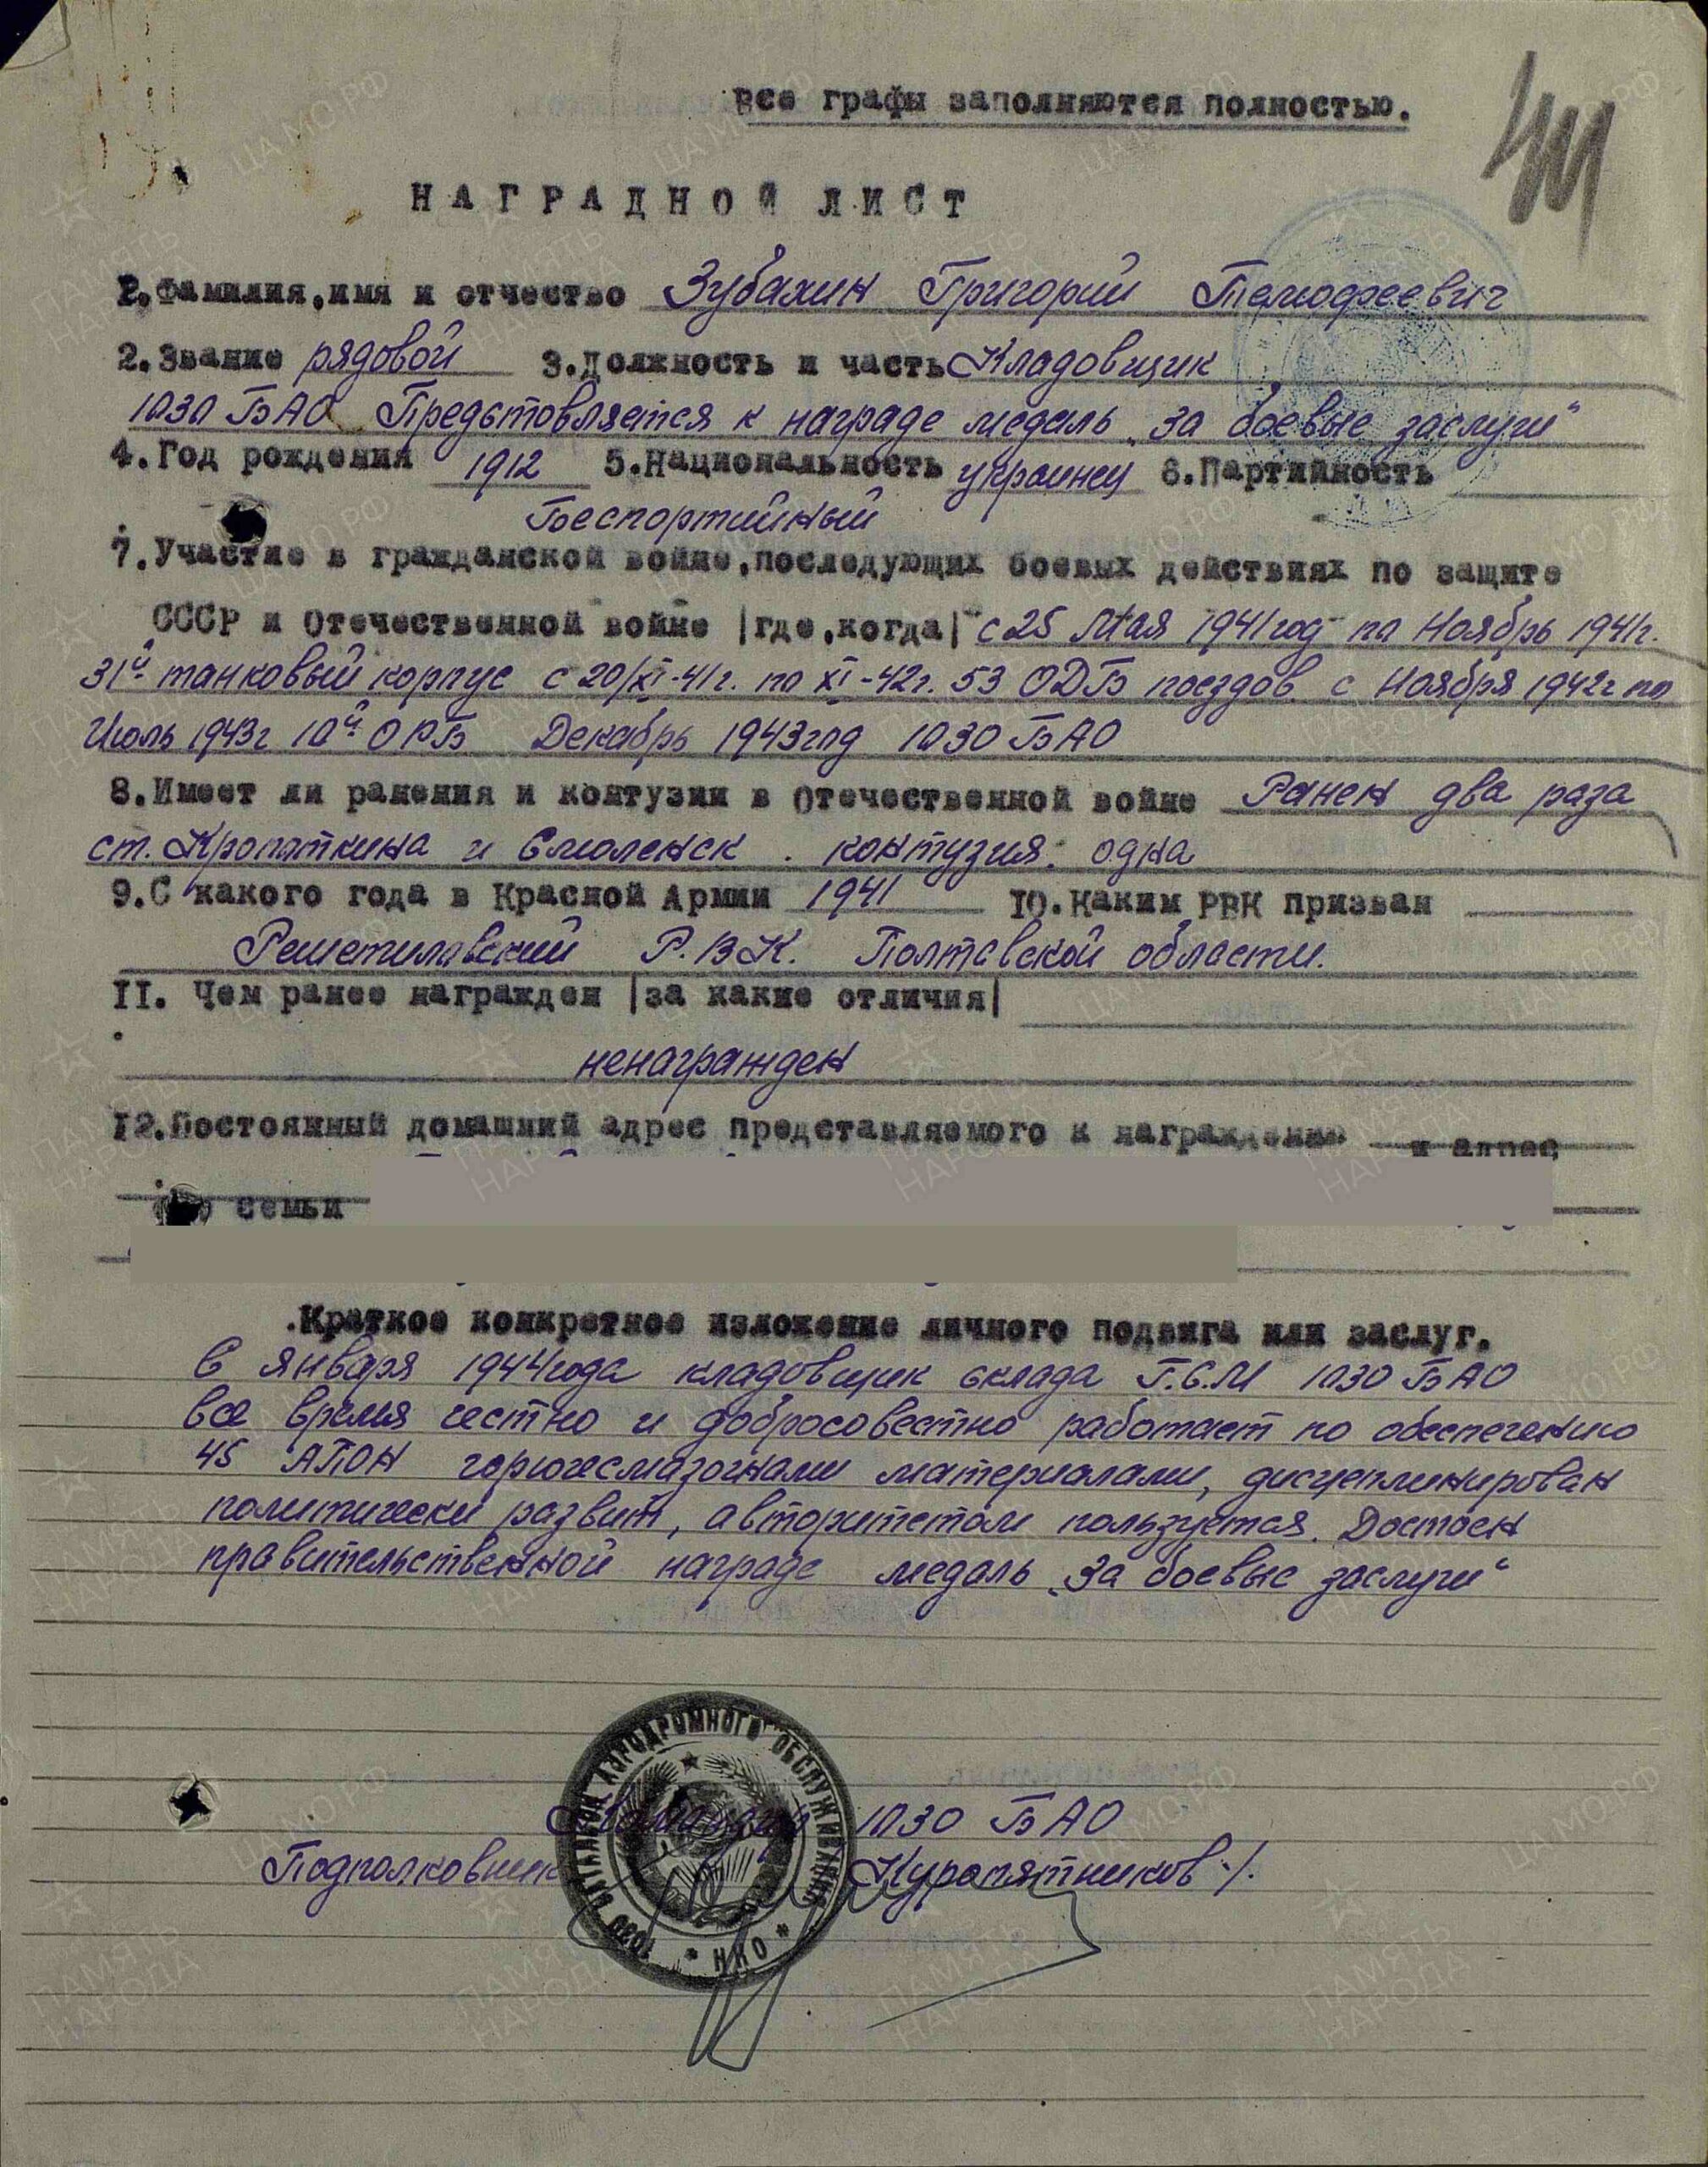 все графы заполняются полностью.
НАГРАДНОЙ ЛИСТ
1. Фамилия, имя и отчество Зубахин Григорий Темофеевич
2. Звание рядовой 3. Должность и часть Кладовщик
1030 БАО Предстовляется к награде медаль „За боевые заслуги“
4. Год рождения 1912 5. Национальность украинец 6. Партийность
Беспортийный
7. Участие в гражданской войне, последующих боевых действиях по защите
СССР и Отечественной войне |где, когда| с 25 Мая 1941 год по Ноябрь 1941г.
31й танковый корпус с 20/XI-41г. по XI-42г. 53 ОДБ поездов с Ноября 1942г по
Июль 1943г 10й ОРБ Декабрь 1943год 1030 БАО
8. Имеет ли ранения и контузии в Отечественной войне Ранен два раза
ст. Кропаткина и Смоленск. контузия: одна
9. С какого года в Красной Армии 1941 10. Каким РВК призван
Решетиловский Р.В.К. Полтавской области.
II. Чем ранее награжден |за какие отличия|
ненагражден
12. Постоянный домашний адрес представляемого к награждению и адрес
семьи
Краткое конкретное изложение личного подвига или заслуг.
С января 1944 года кладовщик склада Г.С.М 1030 БАО
все время честно и добросовестно работает по обеспечению
45 АПОН горючесмазочнами материалами, дисцеплинирован
политически развит, авторитетом пользуется. Достоен
правительственной награде медаль „За боевые заслуги“
Командир 1030 БАО
Подполковник Куропятников /.
1030 БАТАЛЬОН АЭРОДРОМНОГО ОБСЛУЖИВАНИЯ * НКО *
ПАМЯТЬ НАРОДА
ЦА МО РФ